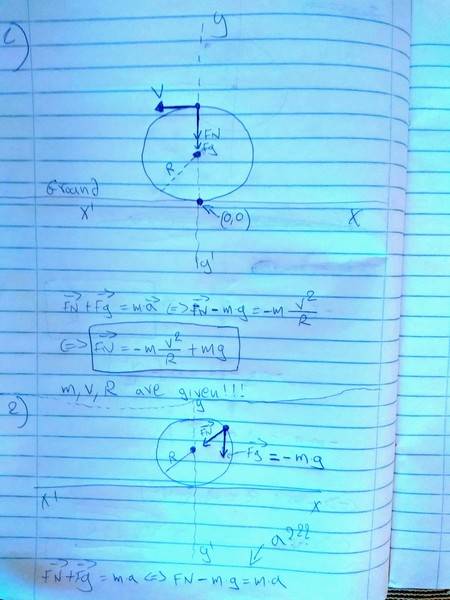 1)
y
V
FN
Fg
R
Ground
x' (0,0) x
y'
→FN + →Fg = m·→a <=> →FN - mg = -m v²/R
<=> →FN = -m v²/R + mg
m, v, R are given!!!
2)
y
→FN
R →Fg = -mg
x' x
y' a???
→FN + →Fg = m·a <=> FN - mg = m·a